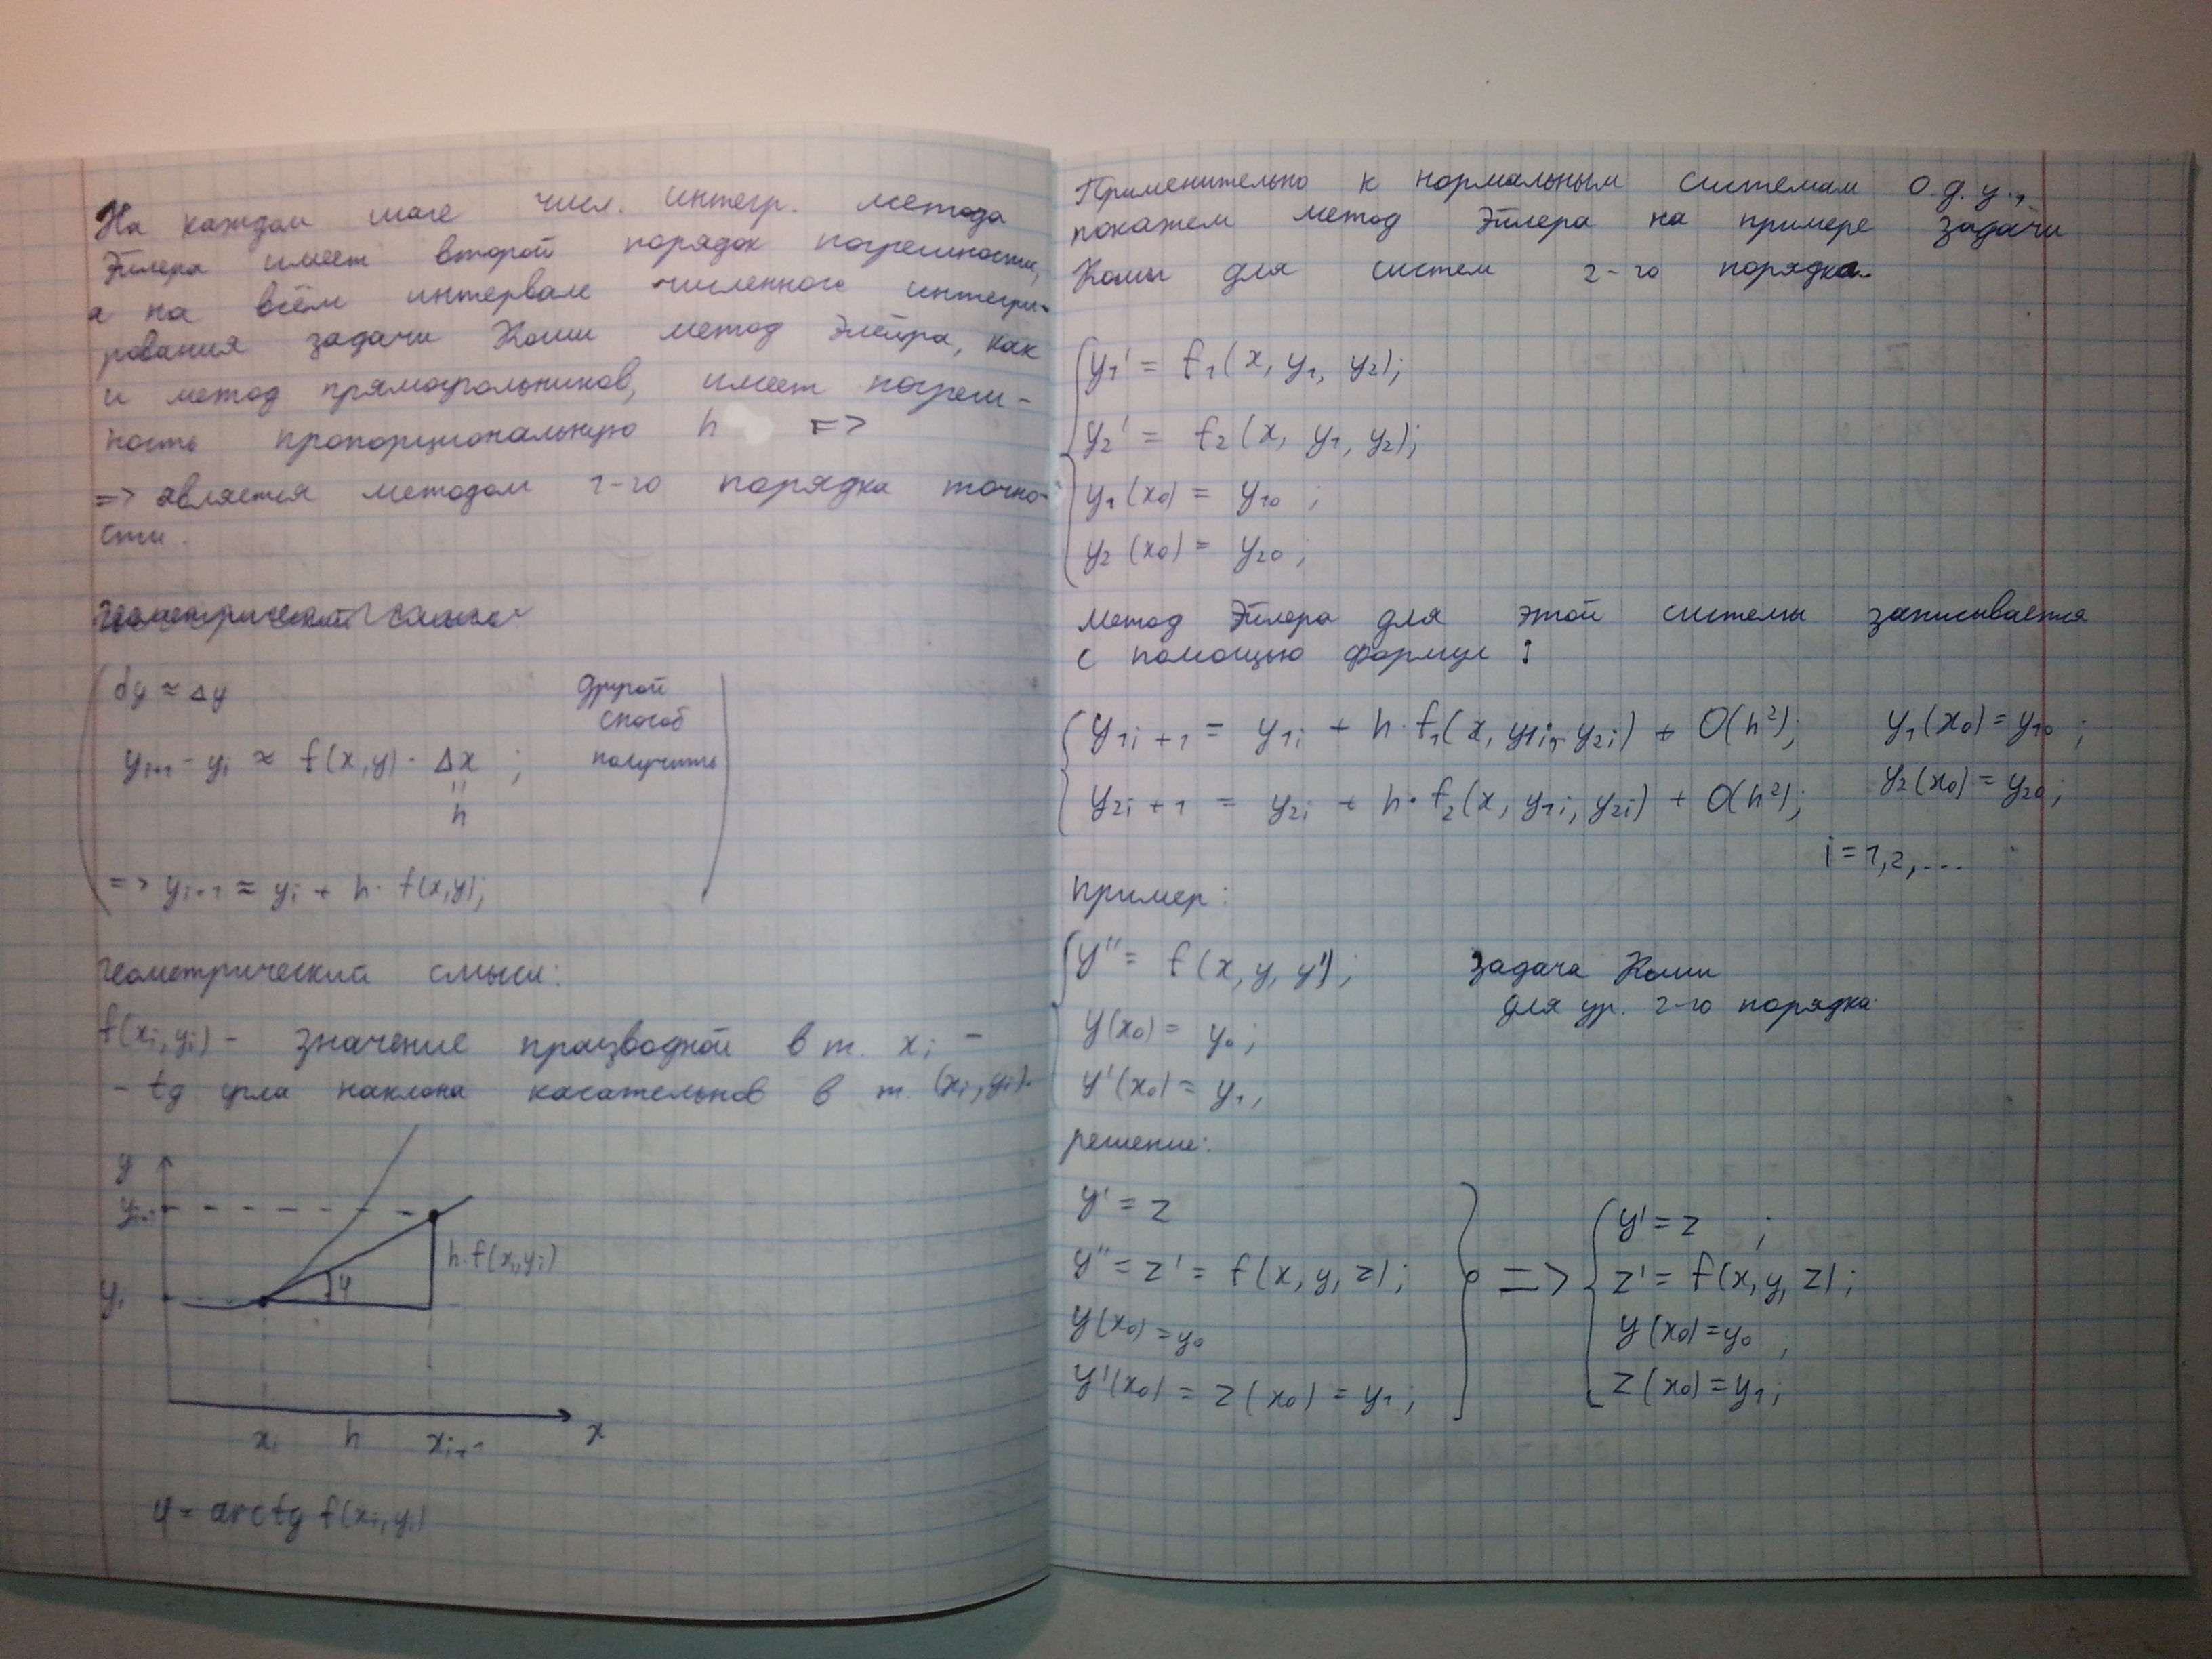 На каждом шаге числ. интегр. метода
Эйлера имеет второй порядок погрешности,
а на всём интервале численного интегри-
рования задачи Коши метод Элейра, как
и метод прямоугольников, имеет погреш-
ность пропорциональную h =>
=> является методом 1-го порядка точно-
сти.
геометрический смысл
dy ≈ Δy
другой
способ
получить
y_{i+1} - y_i ≈ f(x,y) · Δx ;
"
h
=> y_{i+1} ≈ y_i + h · f(x,y);
геометрический смысл:
f(x_i, y_i) - значение производной в т. x_i -
- tg угла наклона касательной в т. (x_i, y_i).
y
y_{i+1}
h·f(x_i,y_i)
φ
y_i
x_i h x_{i+1} x
φ = arctg f(x_i, y_i)
Применительно к нормальным системам о.д.у.,
покажем метод Эйлера на примере задачи
Коши для систем 2-го порядка.
y_1' = f_1(x, y_1, y_2);
y_2' = f_2(x, y_1, y_2);
y_1(x_0) = y_{10} ;
y_2(x_0) = y_{20} ;
метод Эйлера для этой системы записывается
с помощью формул :
y_{1i+1} = y_{1i} + h·f_1(x, y_{1i}, y_{2i}) + O(h²); y_1(x_0) = y_{10} ;
y_{2i+1} = y_{2i} + h·f_2(x, y_{1i}, y_{2i}) + O(h²); y_2(x_0) = y_{20} ;
i = 1,2,...
пример:
y'' = f(x, y, y') ; задача Коши
для ур. 2-го порядка.
y(x_0) = y_0 ;
y'(x_0) = y_1,
решение:
y' = z
y'' = z' = f(x, y, z);
y(x_0) = y_0
y'(x_0) = z(x_0) = y_1 ;
=>
y' = z ;
z' = f(x, y, z);
y(x_0) = y_0 ,
z(x_0) = y_1;